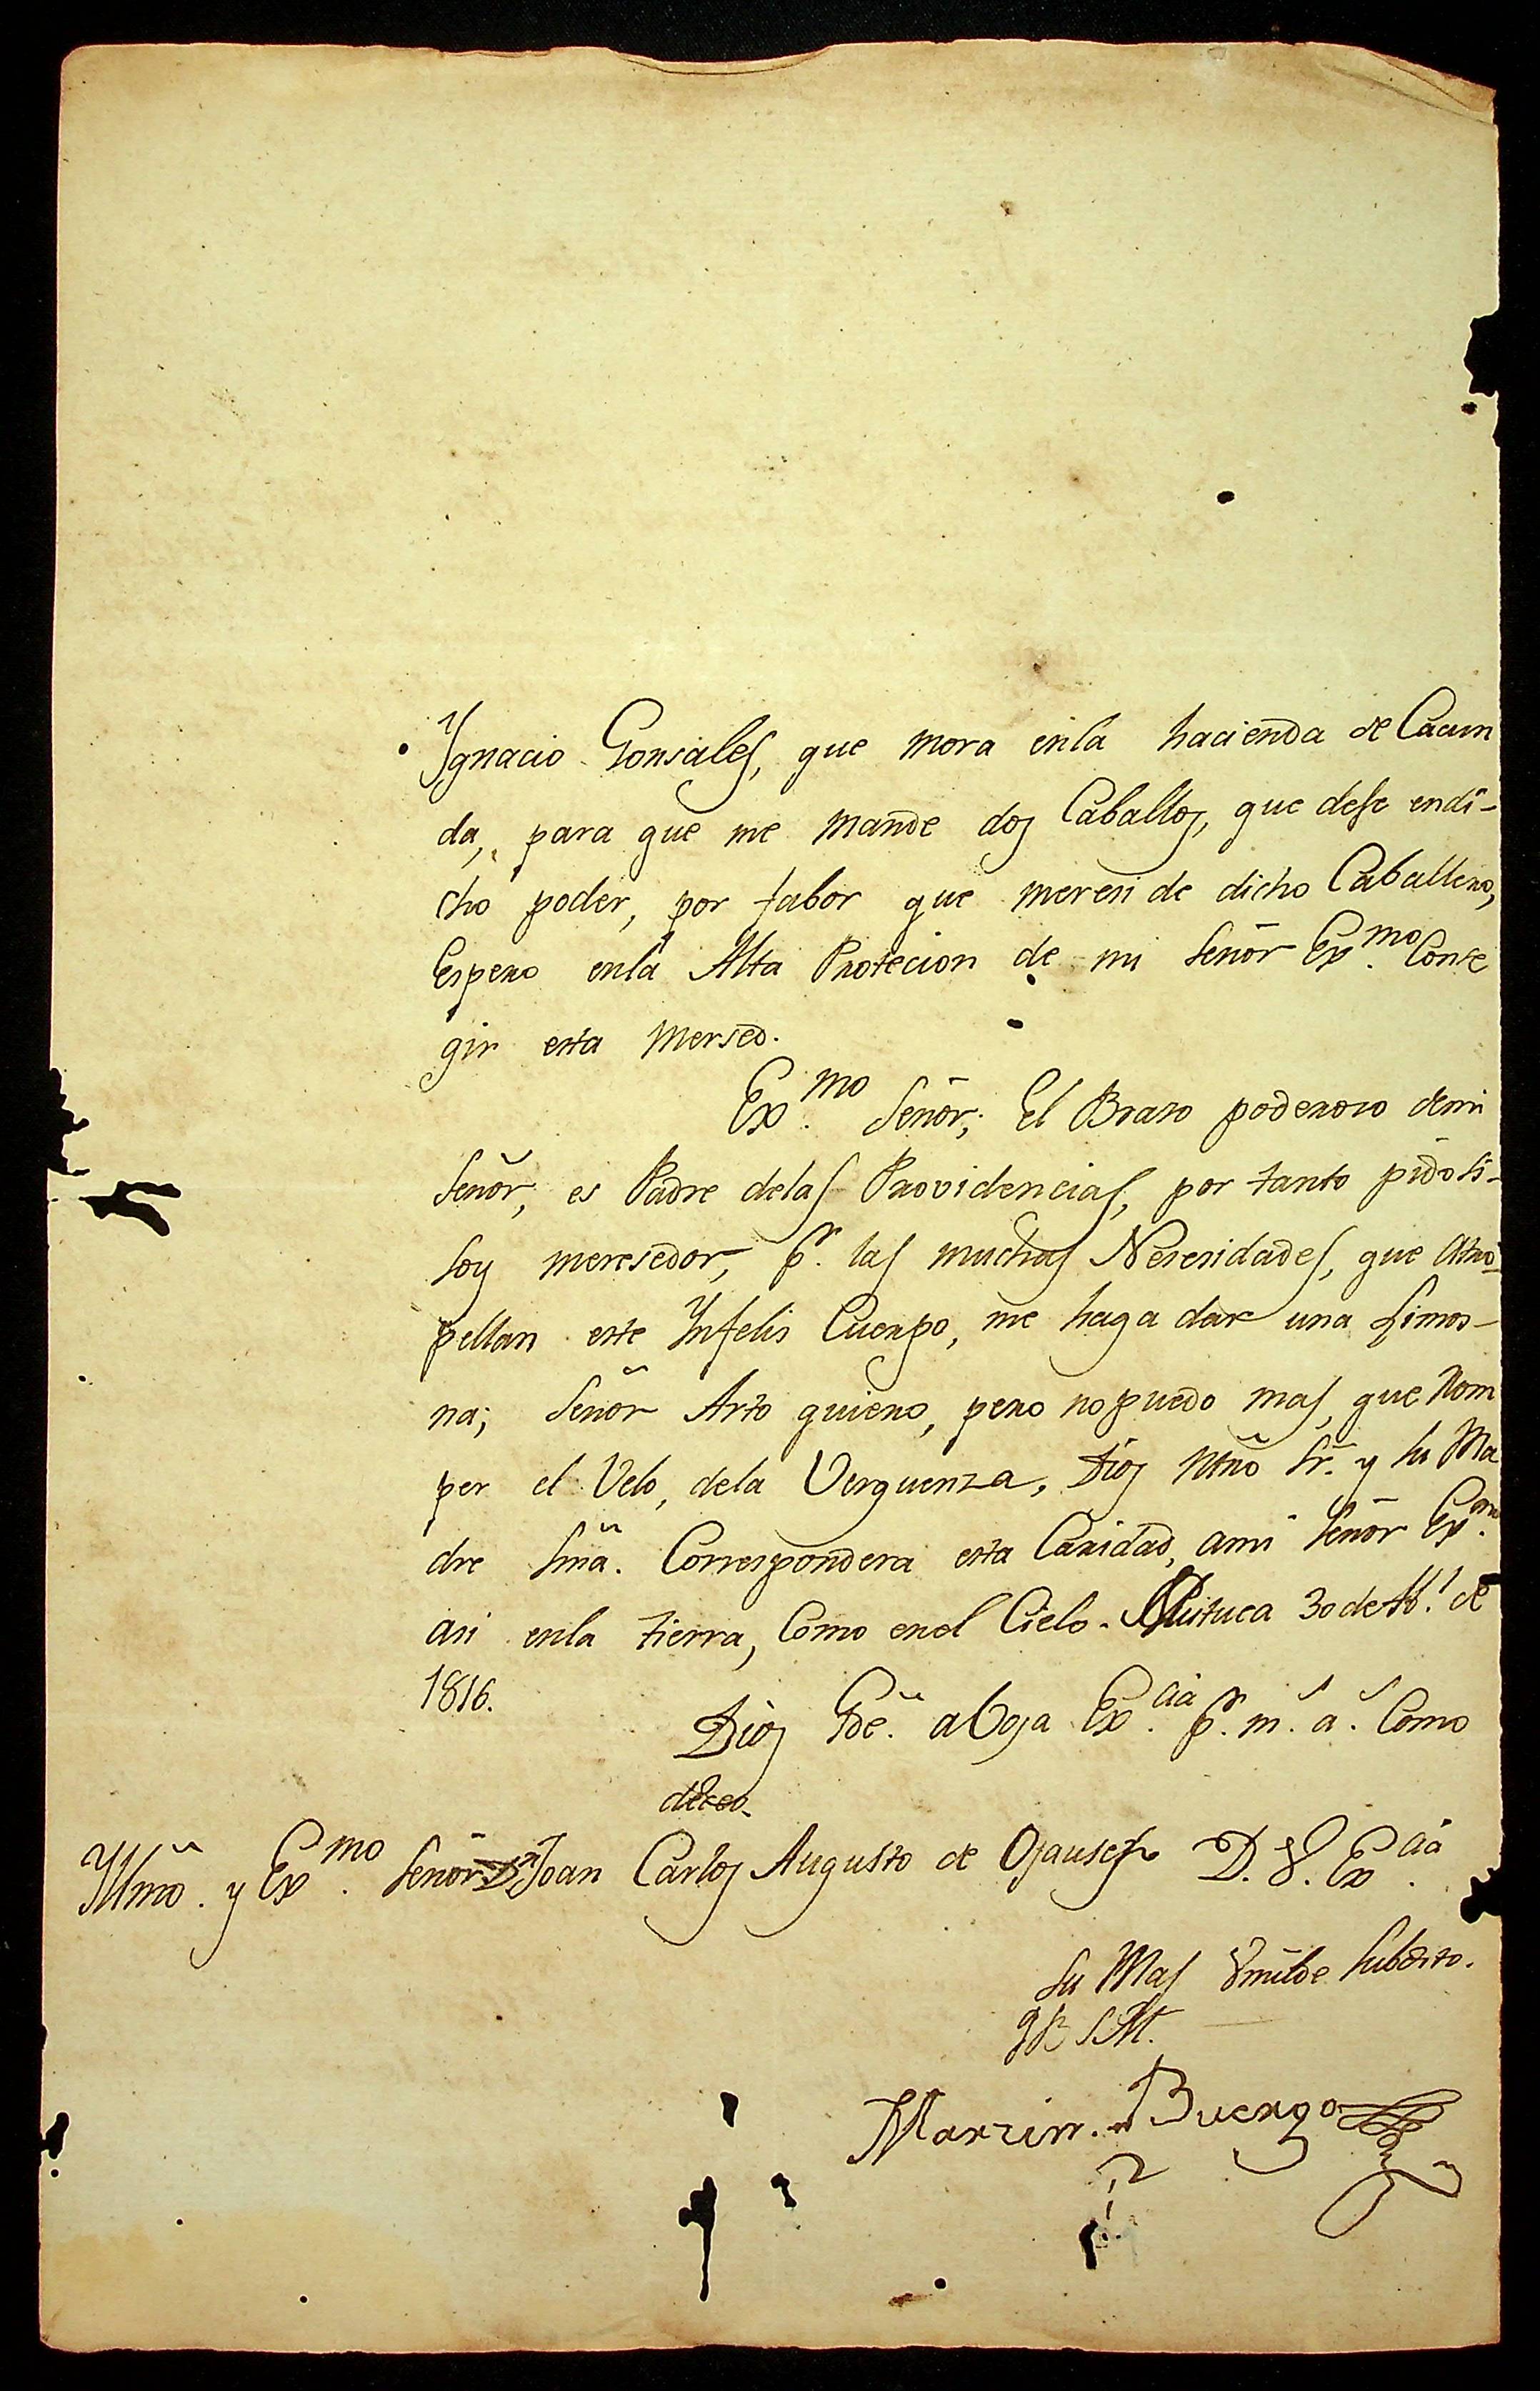 Ygnacio Gonsales, que mora enla hacienda de Cacun
da, para que me mande dos Caballos, que dese endi-
cho poder, por fabor que meresi de dicho Caballero,
Espero enla Alta Protecion de mi Señor Exmo. Conse
gir esta Mersed.
Exmo. Señor; El Braso poderoso demi
Señor, es Padre delas Providencias, por tanto pido si-
soy meresedor, pr. las muchas Nesesidades, que atro-
pellan este Ynfelis Cuerpo, me haga dar una Limos-
na; Señor Arto quiero, pero nopuedo mas, que Rom
per el Velo, dela Verguenza, Dios Ntño Sr. y su Ma
dre Smã. Correspondera esta Caridad, ami Señor Exmo.
asi enla tierra, Como enel Cielo. 30 de Ab.l de
1816.
Dios Gde. a Vsa Excia. pr. m.s a.s Como
deceo.
Yllmo. y Exmo. Señor Dn. Joan Carlos Augusto de Ojausep D. V. Excia.
Su Mas Vmilde Subdito.
q B S M.
Martin. Buergo